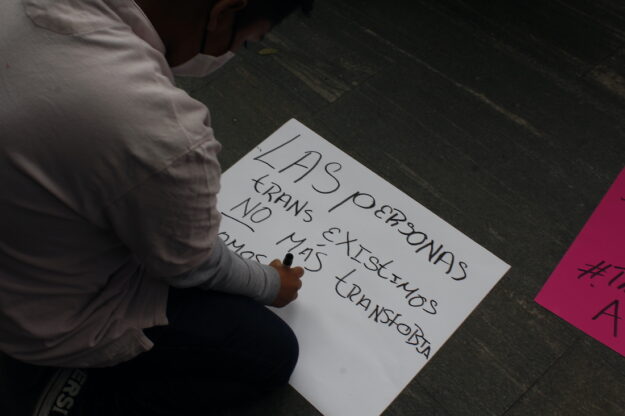 LAS PERSONAS
TRANS EXISTIMOS
NO MÁS
TRANSFOBIA